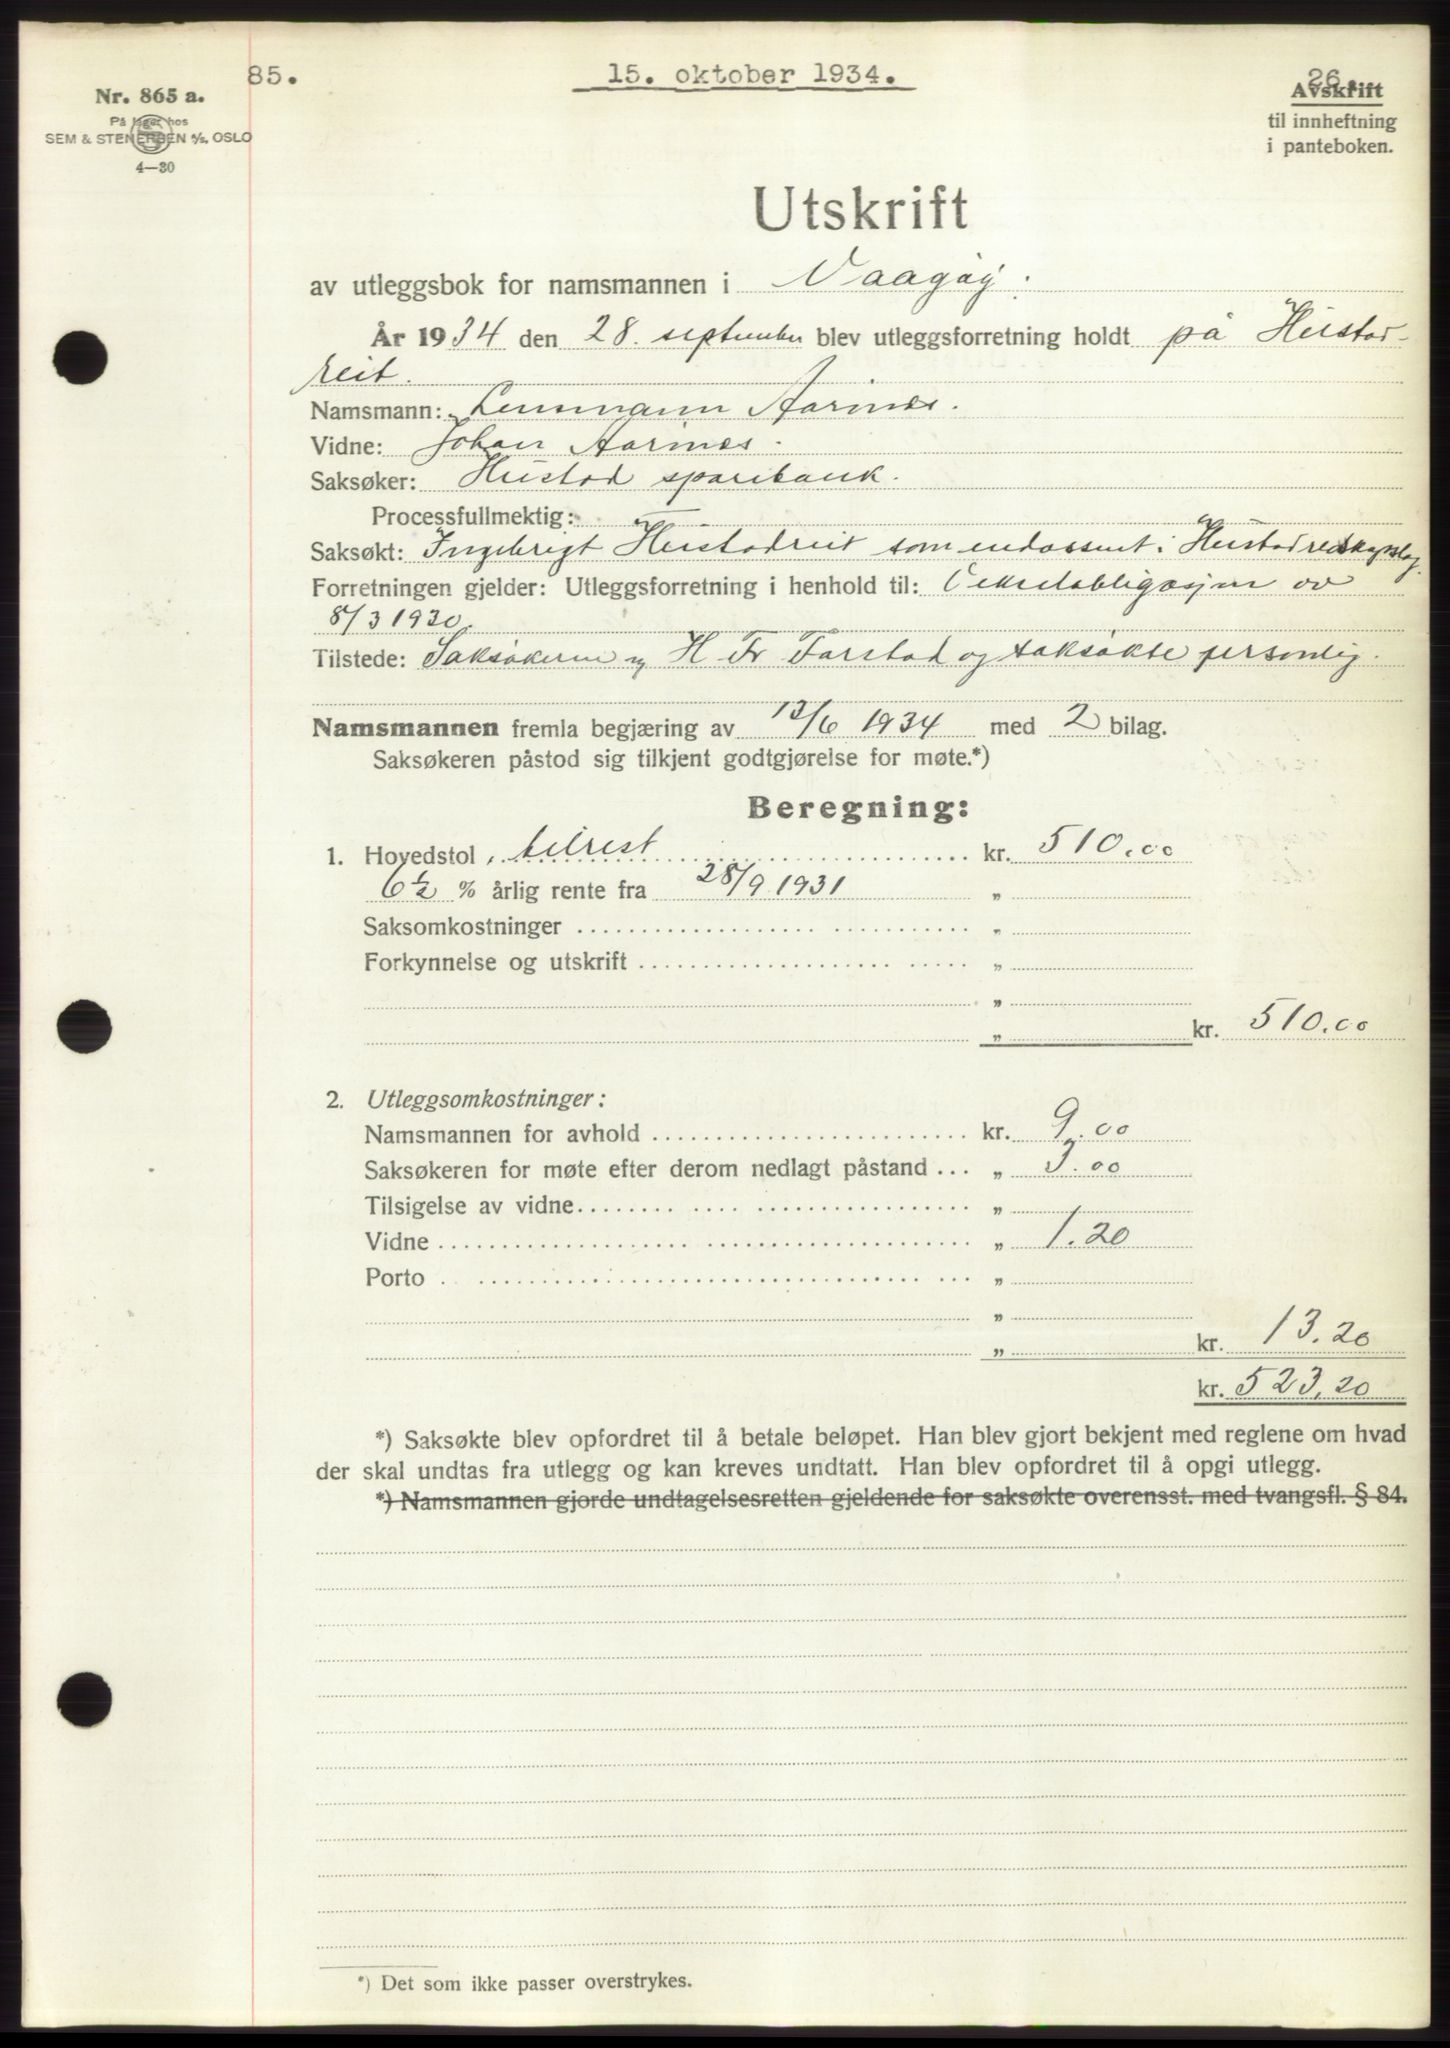 85.
15. oktober 1934.
26.
Nr. 865 a.
På lager hos
SEM & STENERSEN A/S, OSLO
4—30
Avskrift
til innheftning
i panteboken.
Utskrift
av utleggsbok for namsmannen i Vaagøy.
År 1934 den 28. september blev utleggsforretning holdt på Hustad-
reit.
Namsmann: Lensmann Aarinæs.
Vidne: Johan Aarinæs.
Saksøker: Hustad sparebank.
Processfullmektig:
Saksøkt: Ingebrigt Hustadreit som endossent i Hustad redskapslag.
Forretningen gjelder: Utleggsforretning i henhold til: Vekselobligasjon av
8/3 1930.
Tilstede: Saksøkeren v/ H Fr Farstad og saksøkte personlig.
Namsmannen fremla begjæring av 13/6 1934 med 2 bilag.
Saksøkeren påstod sig tilkjent godtgjørelse for møte.*)
Beregning:
1. Hovedstol, tilrest kr. 510.00
6½ % årlig rente fra 28/9 1931 „
Saksomkostninger „
Forkynnelse og utskrift „
„
„ kr. 510.00
2. Utleggsomkostninger:
Namsmannen for avhold kr. 9.00
Saksøkeren for møte efter derom nedlagt påstand ... „ 3.00
Tilsigelse av vidne „
Vidne „ 1.20
Porto „
„
„ kr. 13.20
kr. 523.20
*) Saksøkte blev opfordret til å betale beløpet. Han blev gjort bekjent med reglene om hvad
der skal undtas fra utlegg og kan kreves undtatt. Han blev opfordret til å opgi utlegg.
*) Namsmannen gjorde undtagelsesretten gjeldende for saksøkte overensst. med tvangsfl. § 84.
*) Det som ikke passer overstrykes.